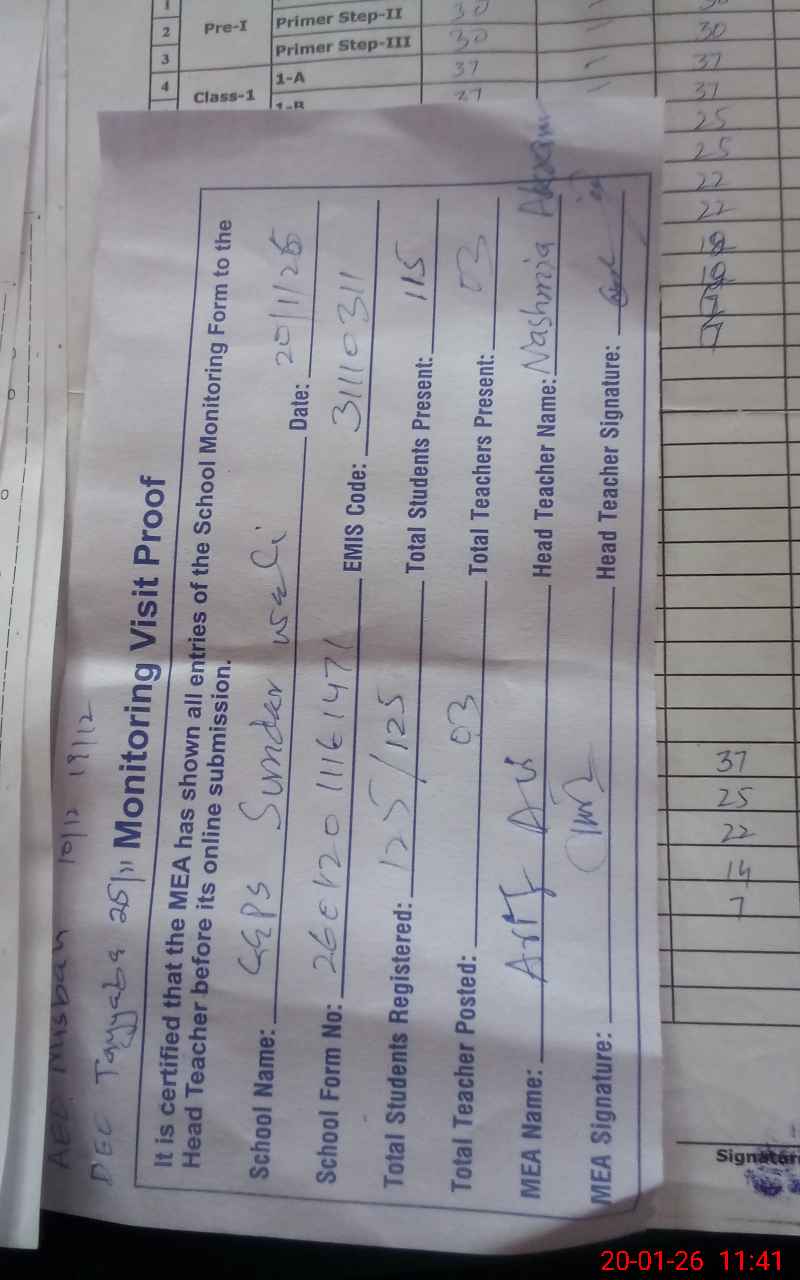 2 Pre-I Primer Step-II 30 30
3 Primer Step-III 30 37
4 Class-1 1-A 37 37
1-B 27
25
25
22
22
18
18
7
7
37
25
22
14
7
Signatur
AEO Misbah 10/12 19/12
DEC Tayyaba 25/11
Monitoring Visit Proof
It is certified that the MEA has shown all entries of the School Monitoring Form to the
Head Teacher before its online submission.
School Name: GGPS Sundar wali Date: 20/1/26
School Form No: EMIS Code: 31110311
Total Students Registered: 125/125 Total Students Present: 115
Total Teacher Posted: 03 Total Teachers Present: 03
MEA Name: Head Teacher Name: Nashmia
MEA Signature: Head Teacher Signature:
20-01-26 11:41